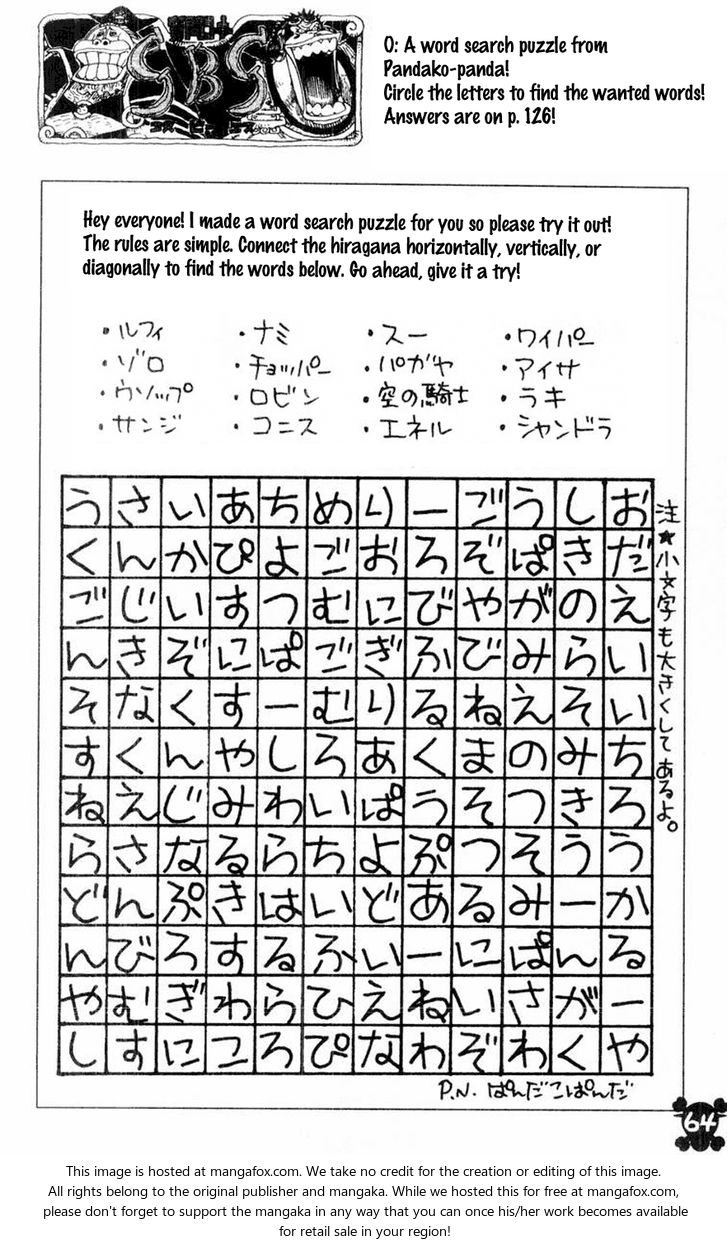 SBS
エスービーエス
O: A word search puzzle from
Pandako-panda!
Circle the letters to find the wanted words!
Answers are on p. 126!
Hey everyone! I made a word search puzzle for you so please try it out!
The rules are simple. Connect the hiragana horizontally, vertically, or
diagonally to find the words below. Go ahead, give it a try!
・ルフィ ・ナミ ・スー ・ワイパー
・ゾロ ・チョッパー ・パガヤ ・アイサ
・ウソップ ・ロビン ・空の騎士 ・ラキ
・サンジ ・コニス ・エネル ・シャンドラ
う さ い あ ち め り ー ご う し お
く ん か ぴ よ ご お ろ ぞ ぱ き だ
ご じ い す つ む に び や が の え
ん き ぞ に ぱ ご ぎ ふ び み ら い
そ な く す ー む り る ね え そ い
す く ん や し ろ あ く ま の み ち
ね え じ み わ い ぱ う そ つ き ろ
ら さ な る ら ち よ ぷ つ そ う う
ど ん ぷ き は い ど あ る み ー か
ん び ろ す る ふ い ー に ぱ ん る
や む ぎ わ ら ひ え ね い さ が ー
し す に こ ろ ぴ な わ ぞ わ く や
注★小文字も大きくしてあるよ。
P.N. ぱんだこぱんだ
64
This image is hosted at mangafox.com. We take no credit for the creation or editing of this image.
All rights belong to the original publisher and mangaka. While we hosted this for free at mangafox.com,
please don't forget to support the mangaka in any way that you can once his/her work becomes available
for retail sale in your region!